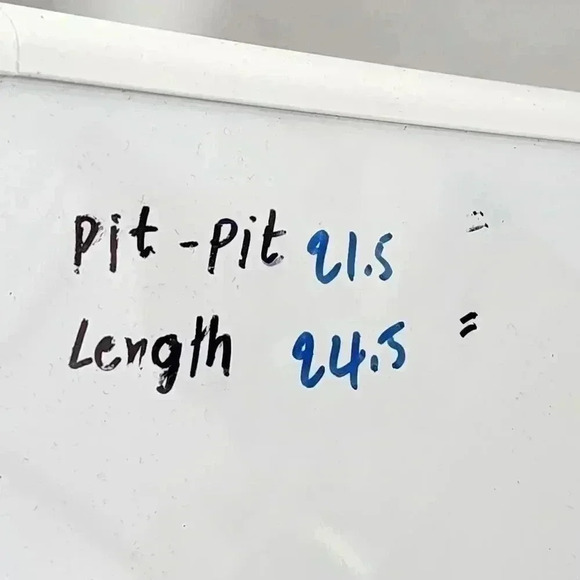 Pit-Pit 21.5 =
Length 24.5 =